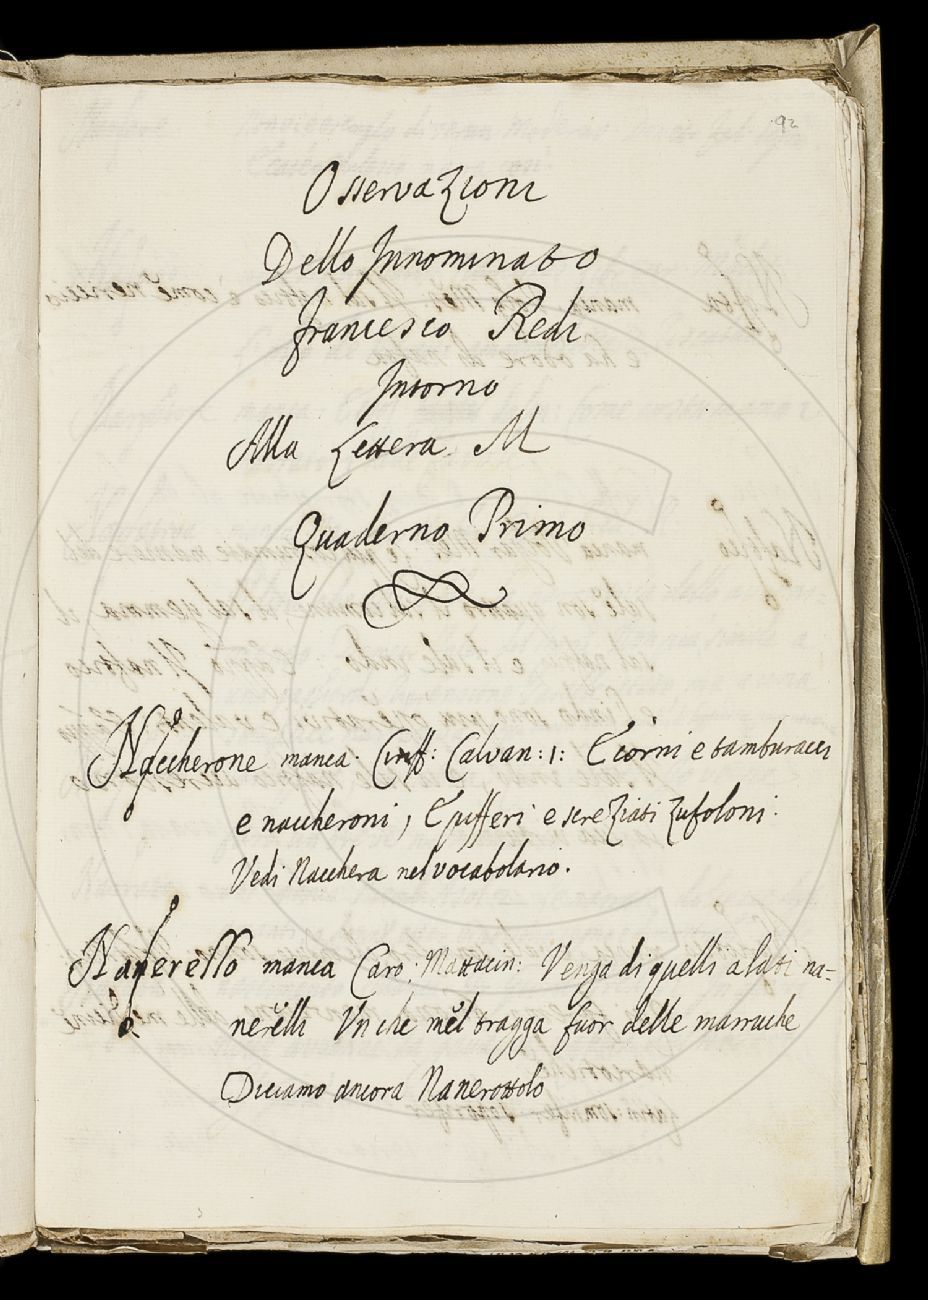 92
Osservazioni
Dello Innominato
Francesco Redi
Intorno
Alla Lettera M
Quaderno Primo
Naccherone manca. Ciriff: Calvan: 1: E corni e tamburacci
e naccheroni, E pifferi e screziati zufoloni.
Vedi Nacchera nel vocabolario.
Nanerello manca Caro: Mattacin: Venga di quelli alati na-
nerelli Un che mel tragga fuor delle marruche
Diciamo ancora Nanerottolo